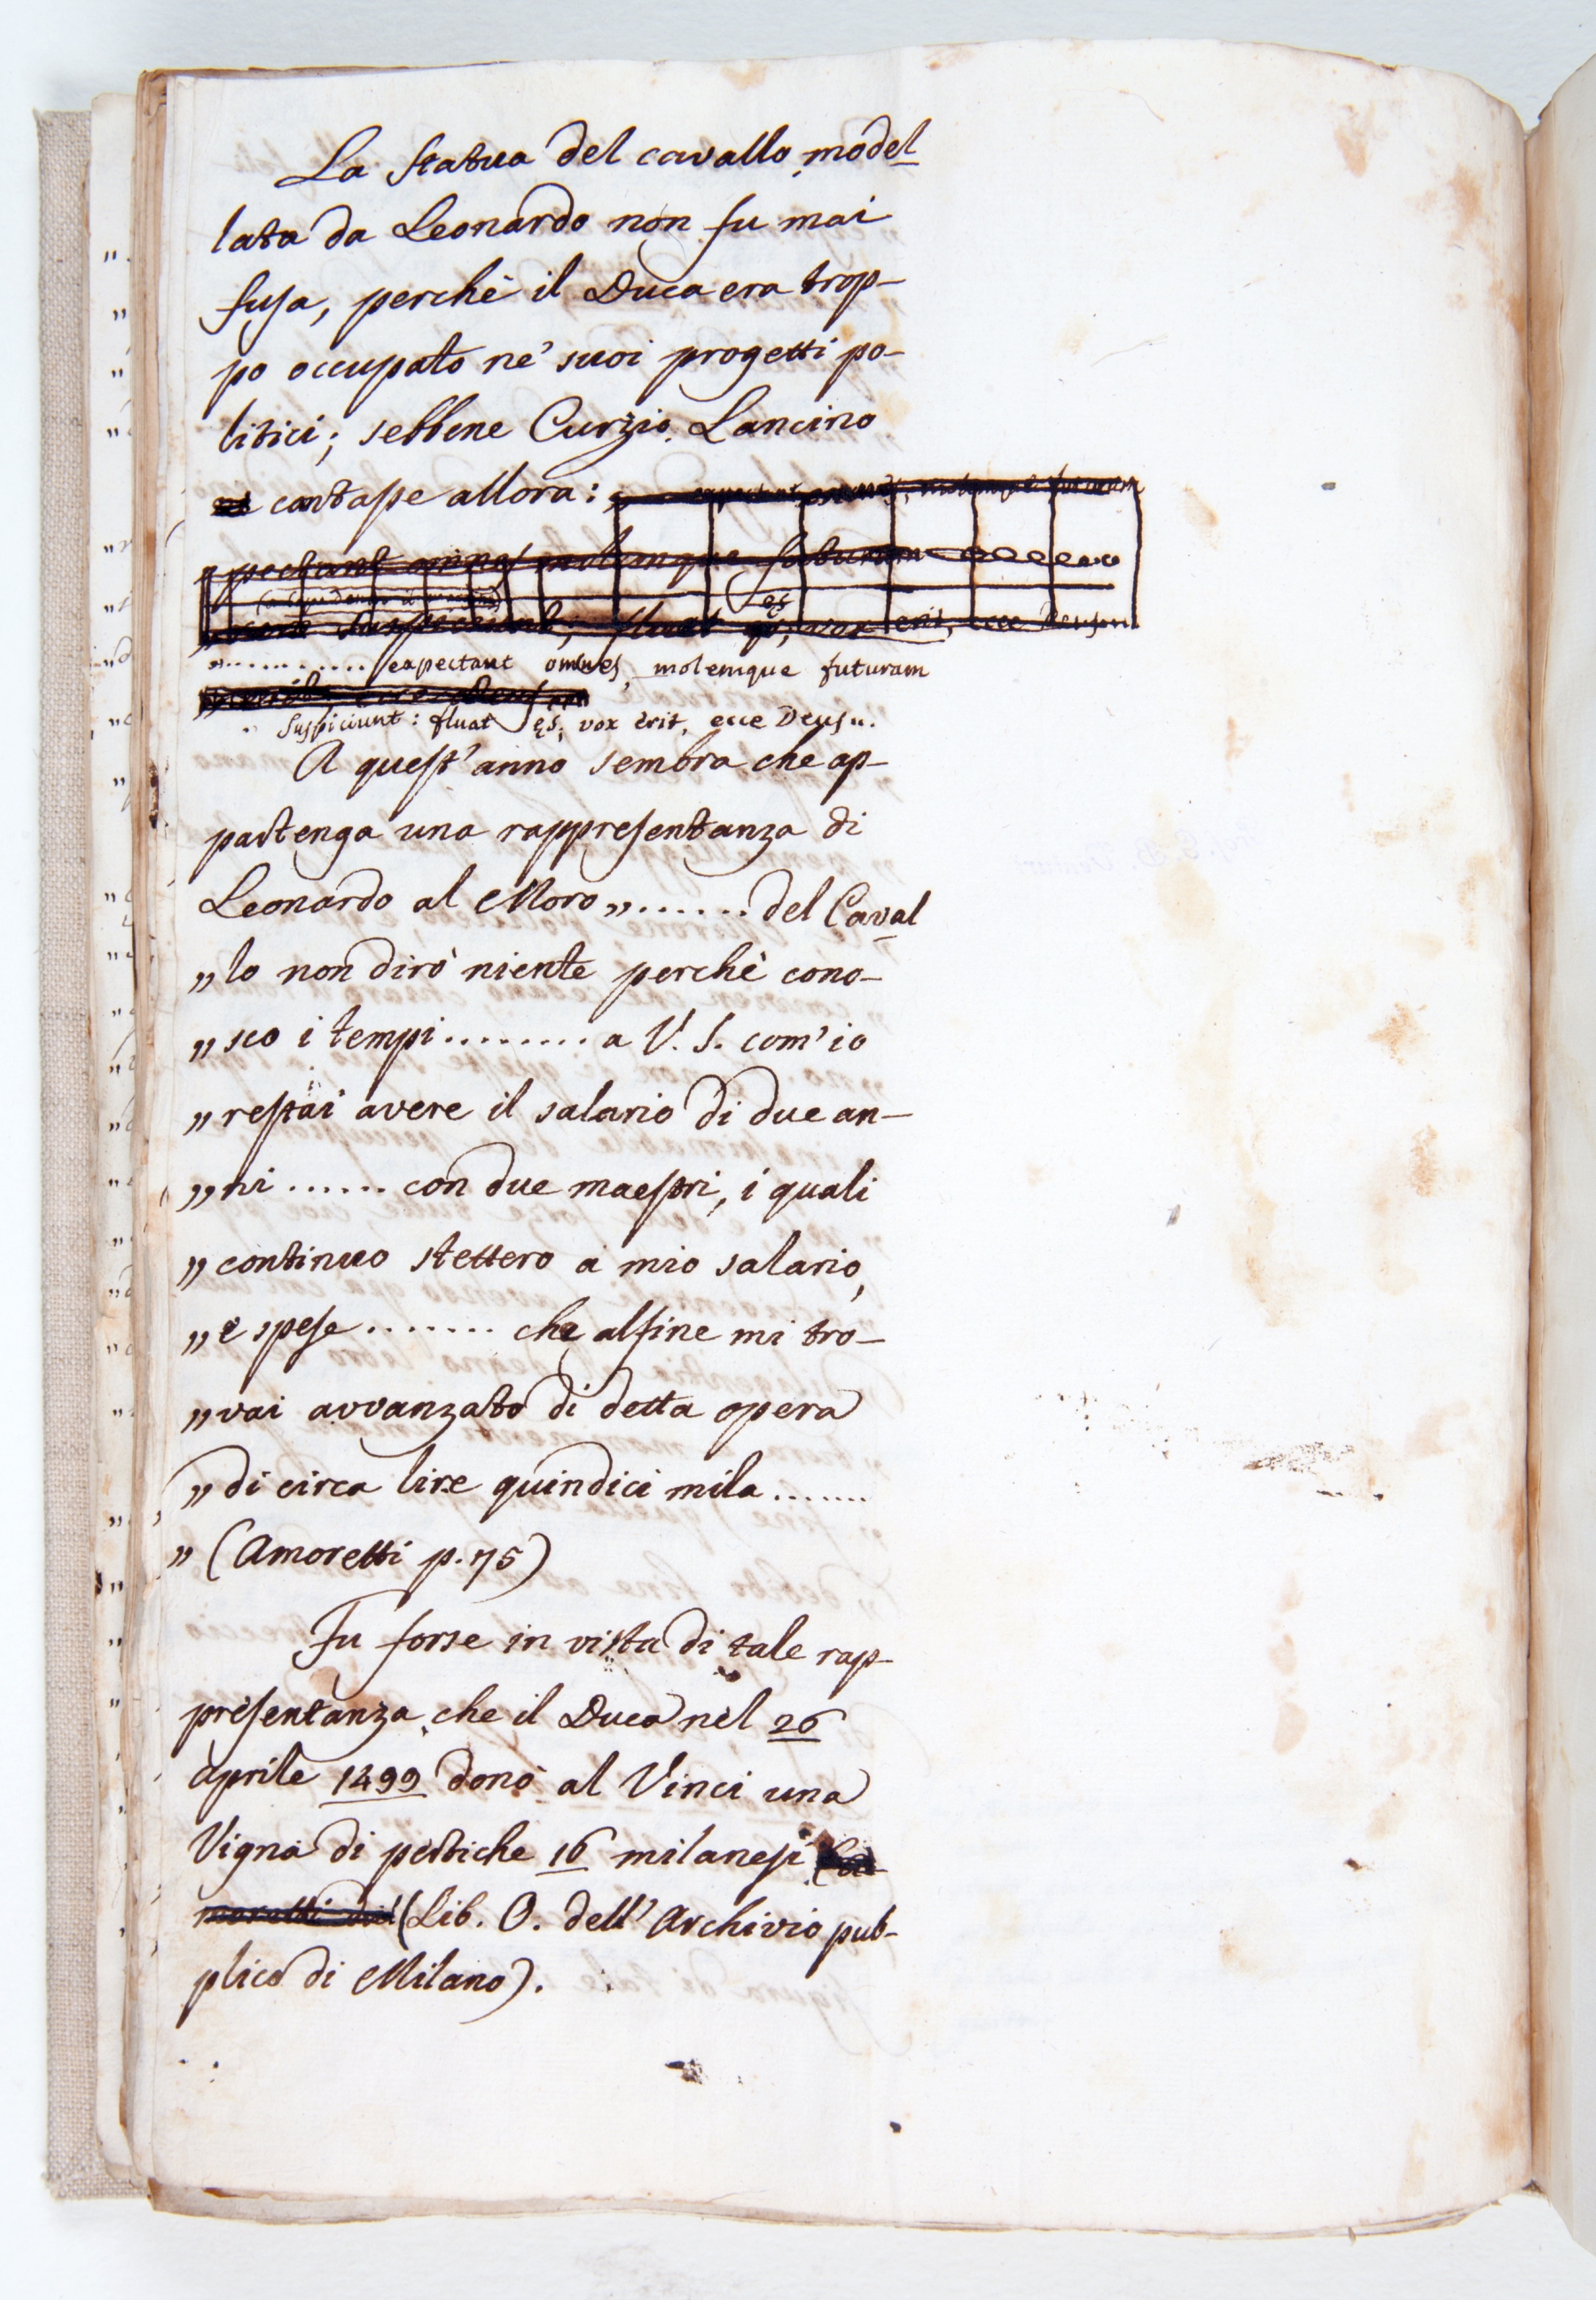 La statua del cavallo model
lata da Leonardo non fu mai
fusa, perchè il Duca era trop-
po occupato ne' suoi progetti po-
litici; sebbene Curzio Lancino
cantasse allora: expectant omnes, molemque futuram
spectant omnes molemque futuram
suspiciunt; fluat es; vox erit, ecce Deus
........... expectant omnes, molemque futuram
Suspiciunt: fluat ęs; vox erit, ecce Deus„.
A quest'anno sembra che ap-
partenga una rappresentanza di
Leonardo al Moro „...... del Caval
„lo non dirò niente perchè cono-
„sco i tempi........ a V. S. com'io
„restai avere il salario di due an-
„ni ...... con due maestri, i quali
„continuo stettero a mio salario,
„e spese ....... che alfine mi tro-
„vai avvanzato di detta opera
„di circa lire quindici mila .......
„(Amoretti p. 75)
Fu forse in vista di tale rap-
presentanza che il Duca nel 26
aprile 1499 donò al Vinci una
Vigna di pertiche 16 milanesi
(Lib. O. dell'Archivio pub-
plico di Milano).